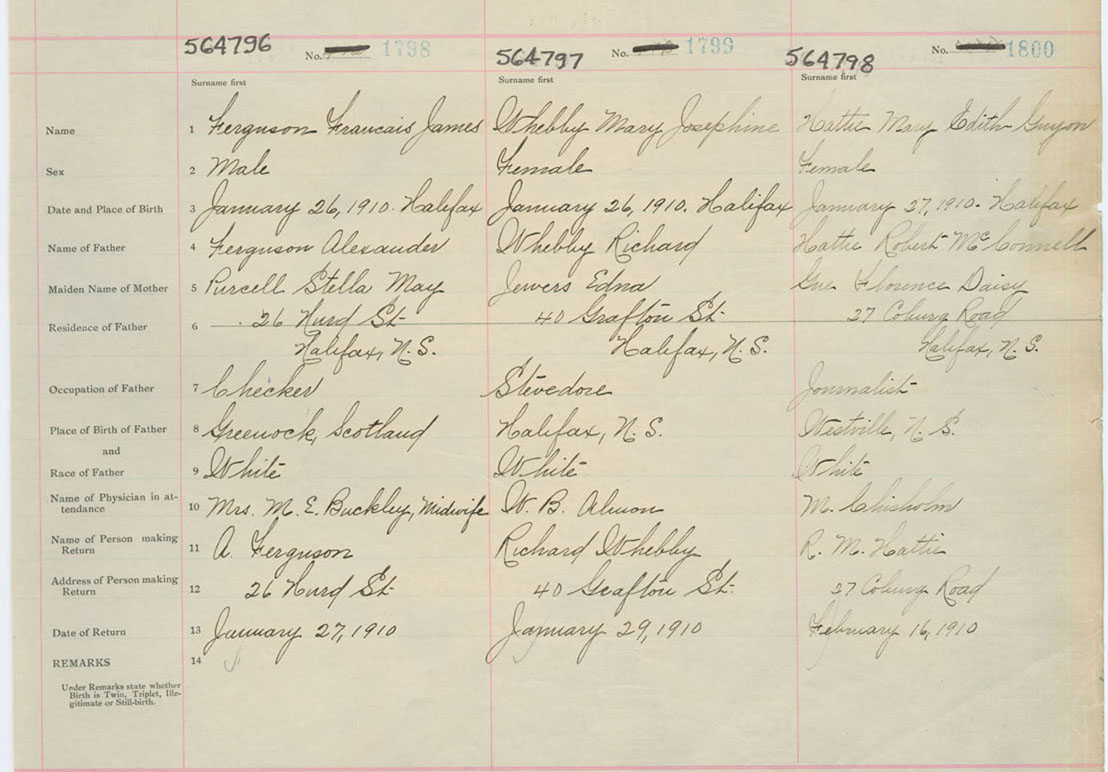 564796 No. 1798 564797 No. 1799 564798 No. 1800
Surname first Surname first Surname first
Name 1 Ferguson Francais James Whebby Mary Josephine Hattie Mary Edith Guyon
Sex 2 Male Female Female
Date and Place of Birth 3 January 26, 1910. Halifax January 26, 1910. Halifax January 27, 1910. Halifax
Name of Father 4 Ferguson Alexander Whebby Richard Hattie Robert McConnell
Maiden Name of Mother 5 Purcell Stella May Jewers Edna Gue Florence Daisy
Residence of Father 6 26 Hurd St. 40 Grafton St. 27 Coburg Road
Halifax, N.S. Halifax, N.S. Halifax, N.S.
Occupation of Father 7 Checker Stevedore Journalist
Place of Birth of Father 8 Greenock, Scotland Halifax, N.S. Westville, N.S.
and
Race of Father 9 White White White
Name of Physician in at-
tendance 10 Mrs. M. E. Buckley, Midwife W. B. Almon M. Chisholm
Name of Person making
Return 11 A. Ferguson Richard Whebby R. M. Hattie
Address of Person making
Return 12 26 Hurd St. 40 Grafton St. 27 Coburg Road
Date of Return 13 January 27, 1910 January 29, 1910 February 16, 1910
REMARKS 14
Under Remarks state whether
Birth is Twin, Triplet, Ille-
gitimate or Still-birth.